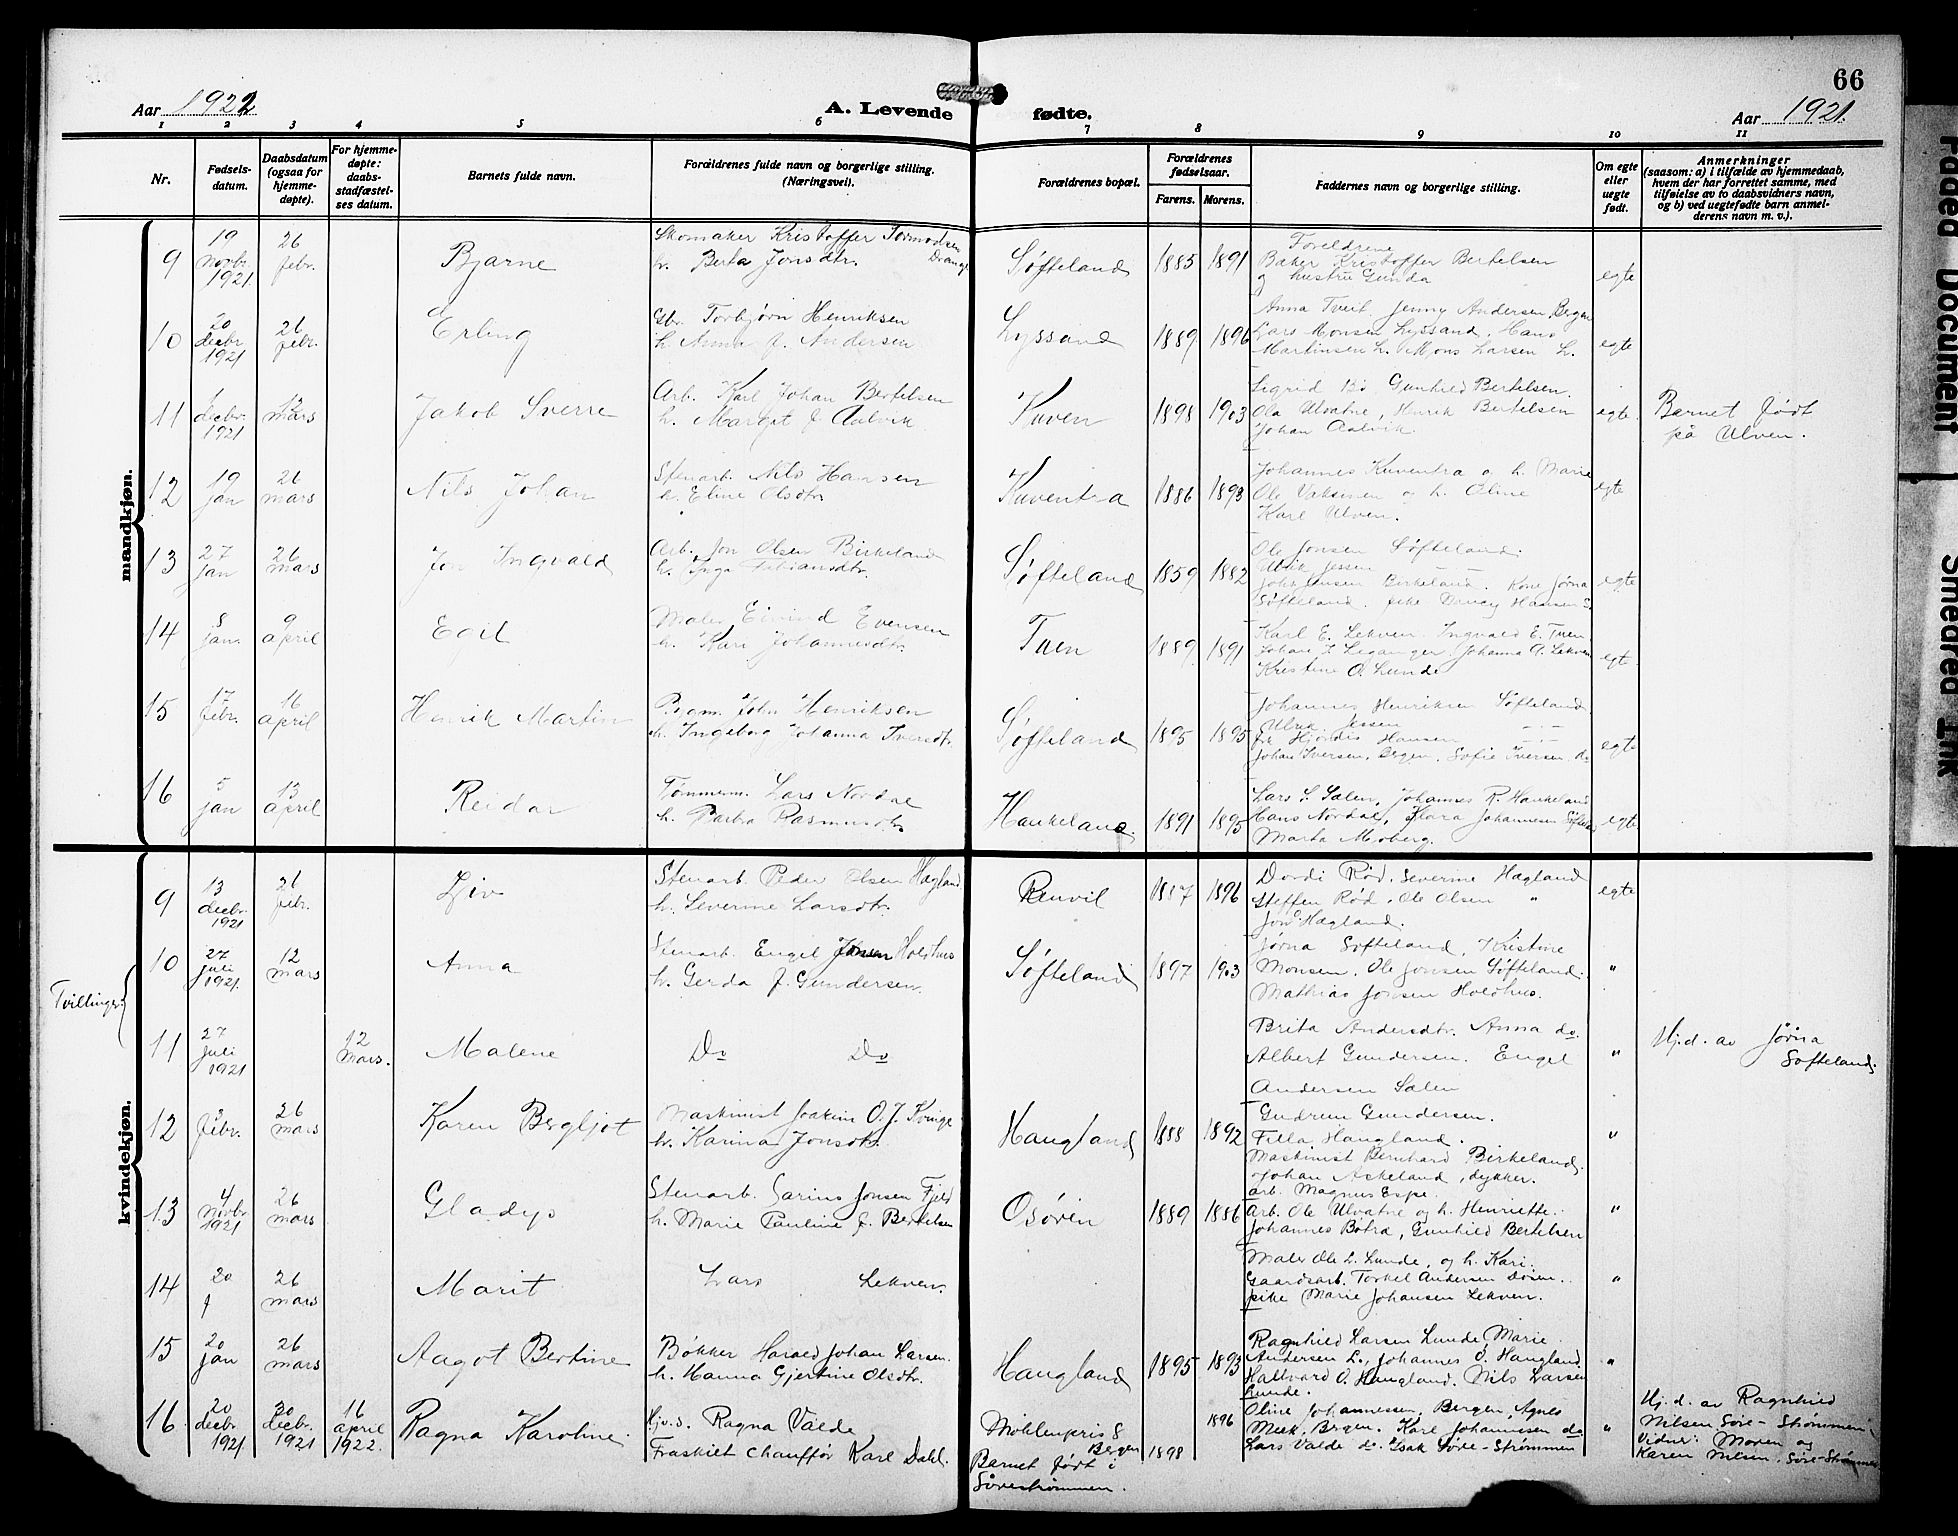 66
Aar 1922
A. Levende fødte.
Aar 1921.
1 2 3 4 5 6 7 8 9 10 11
Nr.
Fødselsdatum.
Daabsdatum (ogsaa for hjemmedøpte).
For hjemmedøpte: daabsstadfæstelses datum.
Barnets fulde navn.
Forældrenes fulde navn og borgerlige stilling. (Næringsvei).
Forældrenes bopæl.
Forældrenes fødselsaar.
Farens. Morens.
Faddernes navn og borgerlige stilling.
Om egte eller uegte født.
Anmerkninger
(saasom: a) i tilfælde av hjemmedaab,
hvem der har forrettet samme, med
tilføielse av to daabsvidners navn,
og b) ved uegtefødte barn anmelderens navn m. v.).
mandkjøn.
9 19 novbr. 1921. 26 febr. Bjarne
Skomaker Kristoffer Tormodsen Drange
h. Berta Jonsdtr.
Søfteland 1885 1891
Foreldrene
Baker Kristoffer Bertelsen
og hustru Gunda
egte
10 20 decbr 1921 26 febr. Erling
Gbr. Torbjørn Henriksen
h. Anna J. Andersen
Lyssand 1889 1896
Anna Tveit, Jenny Andersen, Bergen
Lars Monsen Lyssand. Hans
Martinsen L. Mons Larsen L.
egte
11 1 decbr. 1921 12 mars Jakob Sverre
Arb. Karl Johan Bertelsen
h. Margit J. Aalvik
Kuven 1898 1903
Sigrid Bø Gunhild Bertelsen.
Ola Ulvatne, Henrik Bertelsen
Johan Aalvik.
egte.
Barnet født
på Ulven.
12 19 jan 26 mars Nils Johan
Stenarb. Nils Hansen
h. Eline Olsdtr
Kuventra 1886 1893
Johannes Kuventra og h. Marie
Ole Vaksinen og h. Oline
Karl Ulven.
egte
13 27 jan 26 mars Jon Ingvald
Arb. Jon Olsen Birkeland
h. Inga Fabiansdtr.
Søfteland 1859 1882
Ole Jonsen Søfteland.
Ulrik Jessen
Birkeland. Kone Jørna
Søfteland. pike Hansen S.
egte
14 8 jan. 9 april Egil
Maler Eivind Evensen
h. Kari Johannesdtr.
Tuen 1889 1891
Karl E. Lekven Ingvald E. Tuen
Johan J. Leganger, Johanna A. Lekven
Kristine O. Lunde
egte.
15 17 febr. 16 april Henrik Martin
Bygm. John Henriksen
h. Ingeborg Johanna Iversdtr.
Søfteland 1895 1895
Johannes Henriksen Søfteland.
Ulrik Jessen
frk Hjørdis Hansen
Johan Iversen, Bergen, Sofie Iversen do
egte
16 5 jan 13 april Reidar
Tømmerm. Lars Nordal
h. Barbra Rasmusdtr
Haukeland. 1891 1895
Lars S. Salen, Johannes R. Haukeland
Hans Nordal, Klara Johannesen Søfteland
Marta Moberg.
egte
kvindekjøn.
9 13 decbr. 1921 26 febr. Liv
Stenarb. Peder Olsen Hægland
h. Severine Larsdtr.
Renvil 1887 1896
Dordi Rød, Severine Hægland
Steffen Rød, Ole Olsen "
Jons Hægland.
egte
Tvillinger
10 27 juli 1921. 12 mars Anna
Stenarb. Engel Jonsen Holdhus
h. Gerda J. Gundersen.
Søfteland 1897 1903
Jørna Softeland, Kristine
Monsen, Ole Jonsen Søfteland.
Mathias Jonsen Holdhus.
"
11 27 juli 1921 12 mars. Malene
Do Do
Brita Andersdtr. Anna do.
Albert Gundersen. Engel
Andersen Salen
"
Hj.d. av Jørna
Softeland.
12 febr. 26 mars Karen Bergljot
Maskinist Joakim O. J. Kvinge
h. Karina Jonsdtr.
Haugland 1888 1892
Gudrun Gundersen.
Filla Haugland.
Maskinist Bernhard Birkeland.
Johan Askeland, dykker.
arb. Magnus Espe.
"
13 4 novbr 1921 26 mars Gladys
Stenarb. Sarins Jonsen Fjeld
h. Marie Pauline J. Bertelsen
Osøren 1889 1886
Arb. Ole Ulvatne og h. Henriette.
Johannes Botra, Gunhild Bertelsen
"
14 20 j 26 mars Marit
Lars Lekven.
Maler Ole L. Lunde, og h. Kari.
Gaardsarb. Torkel Andersen Døsen.
pike Marie Johansen Lekven.
"
15 20 jan 26 mars Aagot Bertine
Bøkker Harald Johan Larsen.
h. Hanna Gjertine Olsdtr.
Haugland 1895 1893
Ragnhild Larsen Lunde, Marie
Andersen L., Johannes O. Haugland.
Hallvard O. Haugland. Nils Larsen
Lunde.
"
16 20 decbr. 1921 30 decbr. 1921 16 april 1922. Ragna Karoline.
Hjv.s. Ragna Valde
Fraskilt Chauffør Karl Dahl.
Møhlenpris 8
Bergen
Barnet født i
Sørestrømmen.
1898 1896
Oline Johannessen, Bergen, Agnes
Musk, Bergen. Karl Johannesen do
Lars Valde do. Isak Søre-Strømmen
"
Hj. d. av Ragnhild
Nilsen Søre-Strømmen
Vidner: Moren og
Karen Nilsen. Søre-Strømmen
Faded Document
Smeared Ink